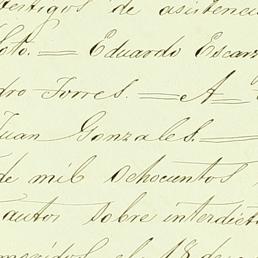 testigos de asistenci
Soto. — Eduardo Escarz
dro Torres. — A —
Juan Gonzales. —
de mil ochocientos
autos sobre interdict
el 18 de